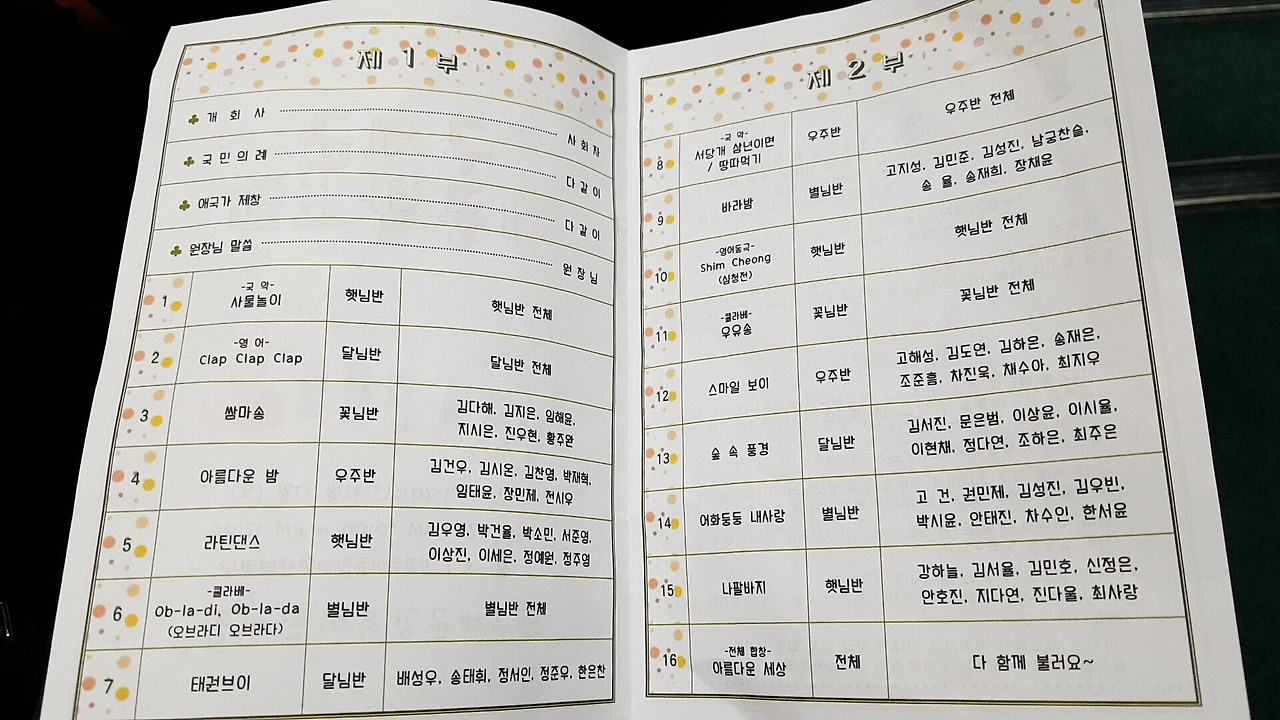 제 1 부
개 회 사 사 회 자
국 민 의 례 다 같 이
애국가 제창 다 같 이
원장님 말씀 원 장 님
1 -국 악- 햇님반 햇님반 전체
사물놀이
2 -영 어- 달님반 달님반 전체
Clap Clap Clap
3 쌈마송 꽃님반 김다해, 김지은, 임해윤,
지시은, 진우현, 황주완
4 아름다운 밤 우주반 김건우, 김시온, 김찬영, 박재혁,
임태윤, 장민제, 전시우
5 라틴댄스 햇님반 김우영, 박건율, 박소민, 서준영,
이상진, 이세은, 정예원, 정주영
6 -클라베- 별님반 별님반 전체
Ob-la-di, Ob-la-da
(오브라디 오브라다)
7 태권브이 달님반 배성우, 송태휘, 정서인, 정준우, 한은찬
제 2 부
8 -국 악- 우주반 우주반 전체
서당개 삼년이면
/ 땅따먹기
9 바라밤 별님반 고지성, 김민준, 김성진, 남궁찬슬,
송 율, 송재희, 장채윤
10 -영어동극- 햇님반 햇님반 전체
Shim Cheong
(심청전)
11 -클라베- 꽃님반 꽃님반 전체
우유송
12 스마일 보이 우주반 고해성, 김도연, 김하은, 송재은,
조준흠, 차진욱, 채수아, 최지우
13 숲 속 풍경 달님반 김서진, 문은범, 이상윤, 이시율,
이현채, 정다연, 조하은, 최주은
14 어화둥둥 내사랑 별님반 고 건, 권민제, 김성진, 김우빈,
박시윤, 안태진, 차수인, 한서윤
15 나팔바지 햇님반 강하늘, 김서율, 김민호, 신정은,
안호진, 지다연, 진다울, 최사랑
16 -전체 합창- 전체 다 함께 불러요~
아름다운 세상